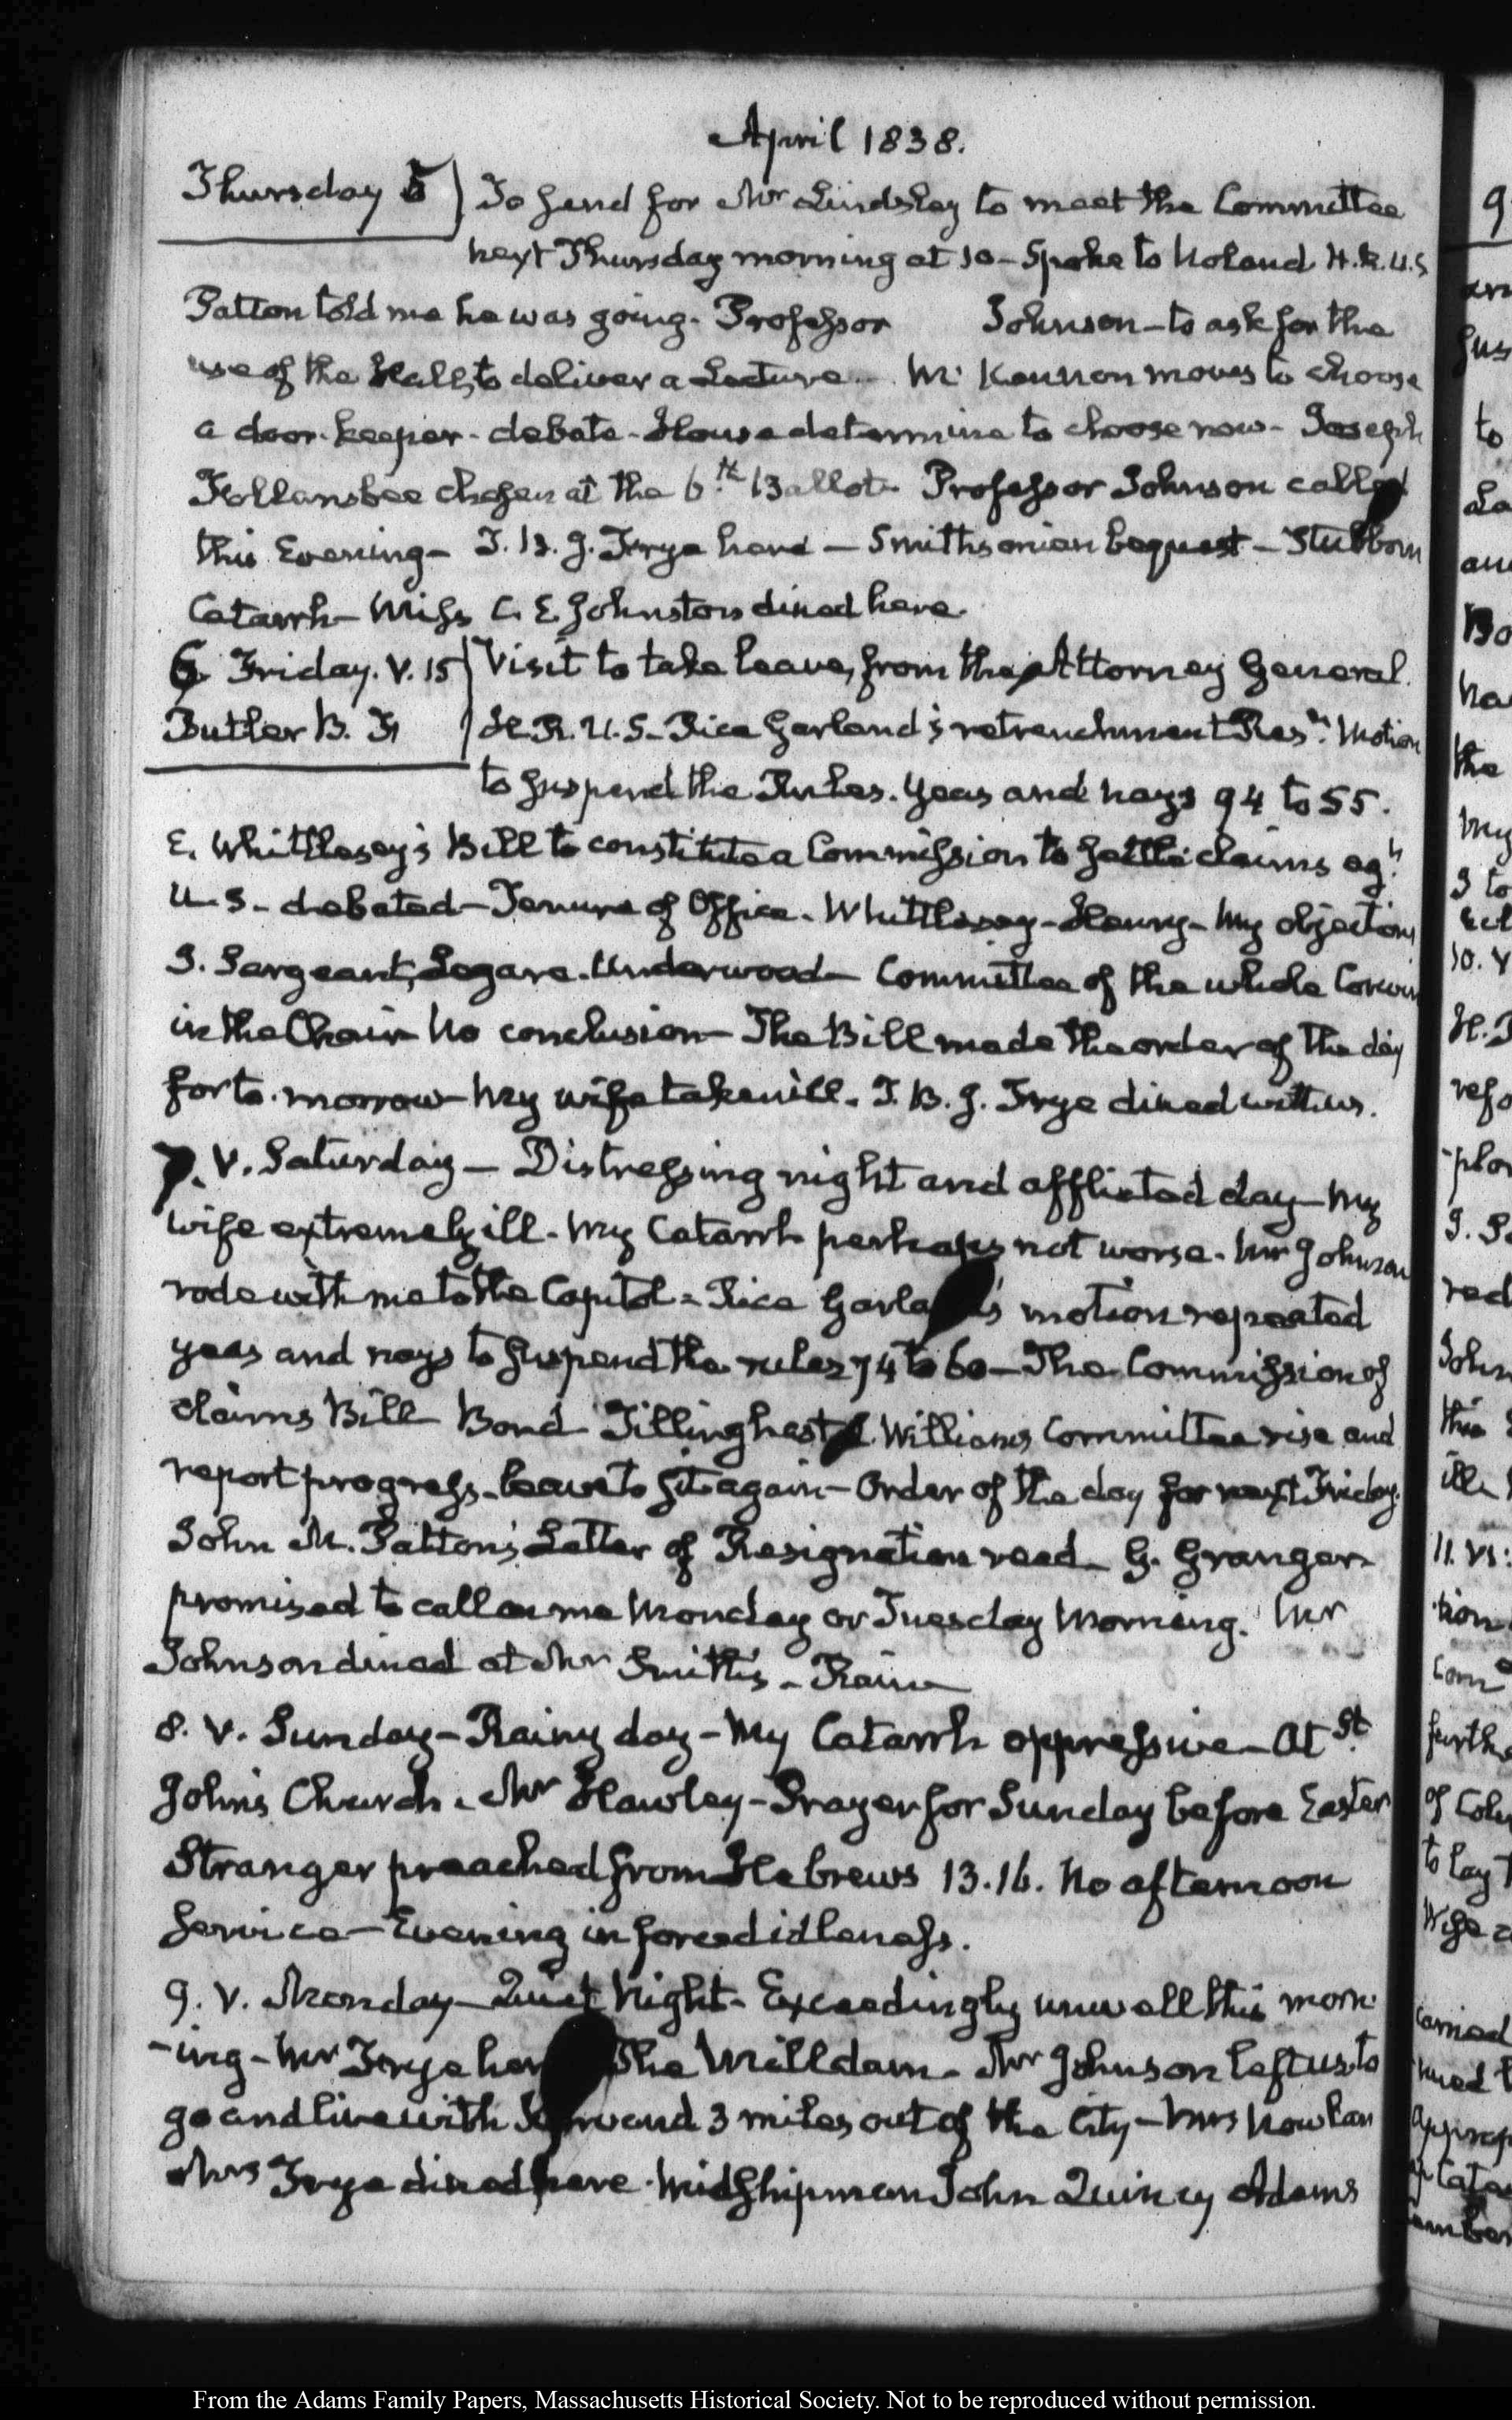 April 1838.
Thursday 5 To send for Mr Lindsley to meet the Committee
next Thursday morning at 10 – Spoke to Noland H.R.U.S
Patton told me he was going. Professor Johnson – to ask for the
use of the Hall, to deliver a Lecture – Mr Kennon moves to choose
a door-keeper – debate – House determine to choose now – Joseph
Follansbee chosen at the 6th Ballot. Professor Johnson called
this Evening – T. B. J. Frye here – Smithsonian bequest – Stubborn
Catarrh – Miss C. E Johnston dined here.
6 Friday. V. 15 Visit to take leave, from the Attorney General.
Butler B. F. H.R.U.S – Rice Garland's retrenchment Resn. Motion
to suspend the Rules. Yeas and nays 94 to 55.
E. Whittlesey's Bill to constitute a Commission to settle claims agt
U.S. – debated – Tenure of Office. Whittlesey – Henry – My objections
J. Sargeant, Legare. Underwood – Committee of the whole Corwin
in the Chair No conclusion – The Bill made the order of the day
for to-morrow – My wife taken ill. T. B. J. Frye dined with us.
7. V. Saturday – Distressing night and afflicted day – My
wife extremely ill. My Catarrh perhaps not worse. Mr Johnson
rode with me to the Capitol – Rice Garland's motion repeated
yeas and nays to suspend the rules 74 to 60 – The Commission of
claims Bill Bond Tillinghast Williams Committee rise and
report progress – leave to sit again – Order of the day for next Friday.
John M. Patton's Letter of Resignation read – G. Granger
promised to call on me Monday or Tuesday Morning. Mr
Johnson dined at Mr Smith's – Rain
8. V. Sunday – Rainy day – My Catarrh oppressive – At St.
John's Church. Mr Hawley – Prayer for Sunday before Easter
Stranger preached from Hebrews 13.16. No afternoon
Service – Evening in forced idleness.
9. V. Monday – Quiet Night – Exceedingly unwell this morn
-ing – Mr Frye here The Milldam – Mr Johnson left us to
go and live with 3 miles out of the City – Mrs Nowlan
Mrs Frye dined here. Midshipman John Quincy Adams
From the Adams Family Papers, Massachusetts Historical Society. Not to be reproduced without permission.